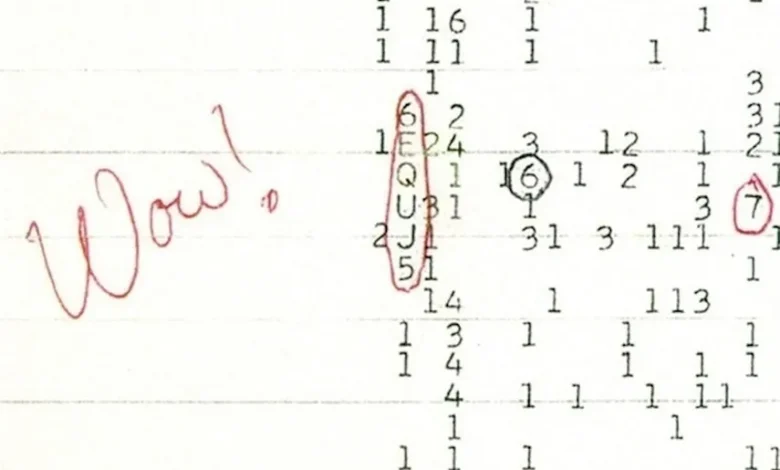 Wow!
1 16 1 1
1 11 1 1
1 3
6 2 31
1 E24 3 12 1 21
Q 1 16 1 2 1 1
U31 1 3 7
2J1 31 3 111 1
51 1
14 1 113
1 3 1 1 1
1 4 1 1 1
4 1 1 1 11
1 1
1 1 1 11